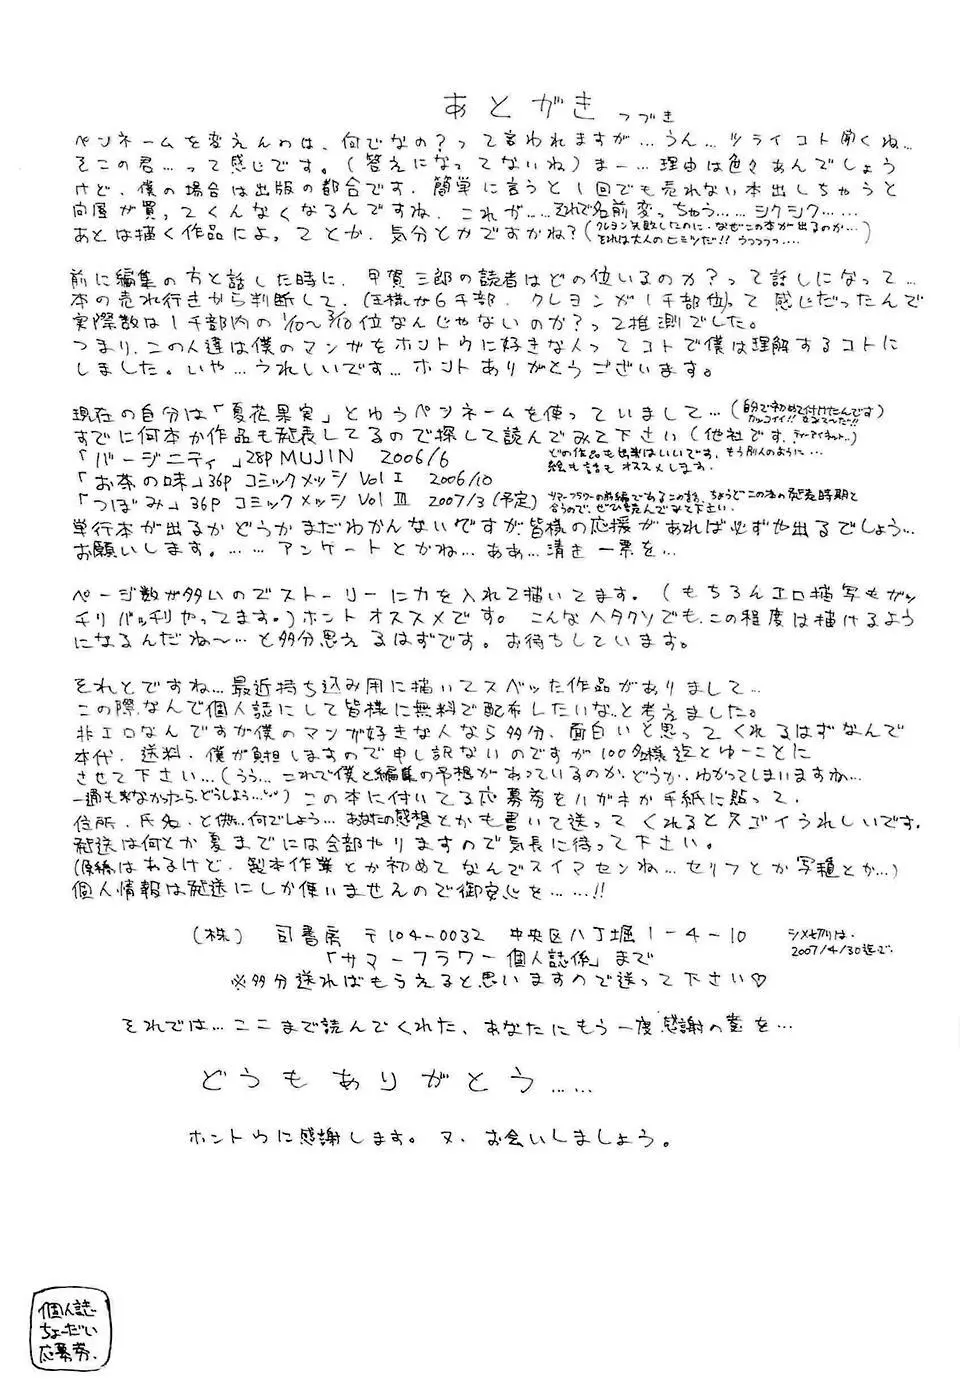 あとがき つづき
ペンネームを変えんのは、何でなの?って言われますが…うん…ツライコト聞くね…
そこの君…って感じです。(答えになってないね)まー…理由は色々あんでしょう
けど、僕の場合は出版の都合です。簡単に言うと1回でも売れない本出しちゃうと
問屋が買ってくんなくなるんですね。これが……それで名前変っちゃう……シクシク……
あとは描く作品によってとか、気分とかですかね?(クレヨン失敗したのに、なぜこの本が出るのか…
それは大人のヒミツだ!!うっつっつ….)
前に編集の方と話した時に、甲賀三郎の読者はどの位いるのか?って話しになって…
本の売れ行きから判断して、(王様が6千部、クレヨンが1千部位)って感じだったんで
実際数は1千部内の1/10~3/10位なんじゃないのか?って推測でした。
つまり、この人達は僕のマンガをホントウに好きな人ってコトで僕は理解するコトに
しました。いや…うれしいです…ホントありがとうございます。
現在の自分は「夏花果実」とゆうペンネームを使っていまして…(自分で初めて付けたんです
カッコイイ!!)
すでに何本か作品も発表してるので探して読んでみて下さい(他社です、ティーアイネット..)
「バージニティ」28P MUJIN 2006/6
どの作品も出来はいいです、もう別人のように…
絵も話もオススメします.
「お茶の味」36P コミックメッシ Vol I 2006/10
「つぼみ」36P コミックメッシ Vol III 2007/3(予定)
サマーフラワーの前編であるこの話、ちょうどこの本の発売時期と
合うので、ぜひ読んでみて下さい.
単行本が出るかどうかまだわかんないですが、皆様の応援があれば必ずや出るでしょう…
お願いします。……アンケートとかね…ああ…清き一票を…
ページ数が多いのでストーリーに力を入れて描いてます。(もちろんエロ描写もガッ
チリバッチリやってます。)ホントオススメです。こんなヘタクソでも、この程度は描けるよう
になるんだね~…と多分思えるはずです。お待ちしています。
それとですね…最近持ち込み用に描いてスベッた作品がありまして…
この際なんで個人誌にして皆様に無料で配布したいな…と考えました。
非エロなんですが僕のマンガが好きな人なら多分、面白いと思ってくれるはずなんで
本代、送料、僕が負担しますので申し訳ないのですが100名様迄とゆーことに
させて下さい…(うぅ…これで僕と編集の予想があっているのか、どうか、わかってしまいますね…
一通も来なかったら、どうしよう…)この本に付いてる応募券をハガキか手紙に貼って、
住所、氏名、と何でしょう…あなたの感想とかも書いて送ってくれるとスゴイうれしいです。
発送は何とか夏までには全部やりますので気長に待って下さい。
(原稿はあるけど、製本作業とか初めてなんでスイマセンね…セリフとか写植とか…)
個人情報は発送にしか使いませんので御安心を……!!
(株) 司書房 〒104-0032 中央区八丁堀1-4-10
シメキリは、
2007/4/30迄で.
「サマーフラワー個人誌係」まで
※多分送ればもらえると思いますので送って下さい♡
それでは…ここまで読んでくれた、あなたにもう一度感謝の意を…
どうもありがとう……
ホントウに感謝します。又、お会いしましょう。
個人誌
ちょーだい
応募券.